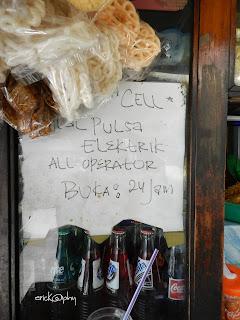 "CELL"*
Pulsa
ELEKTRIK
ALL OPERATOR
BUKA: 24 Jam
erick@phy